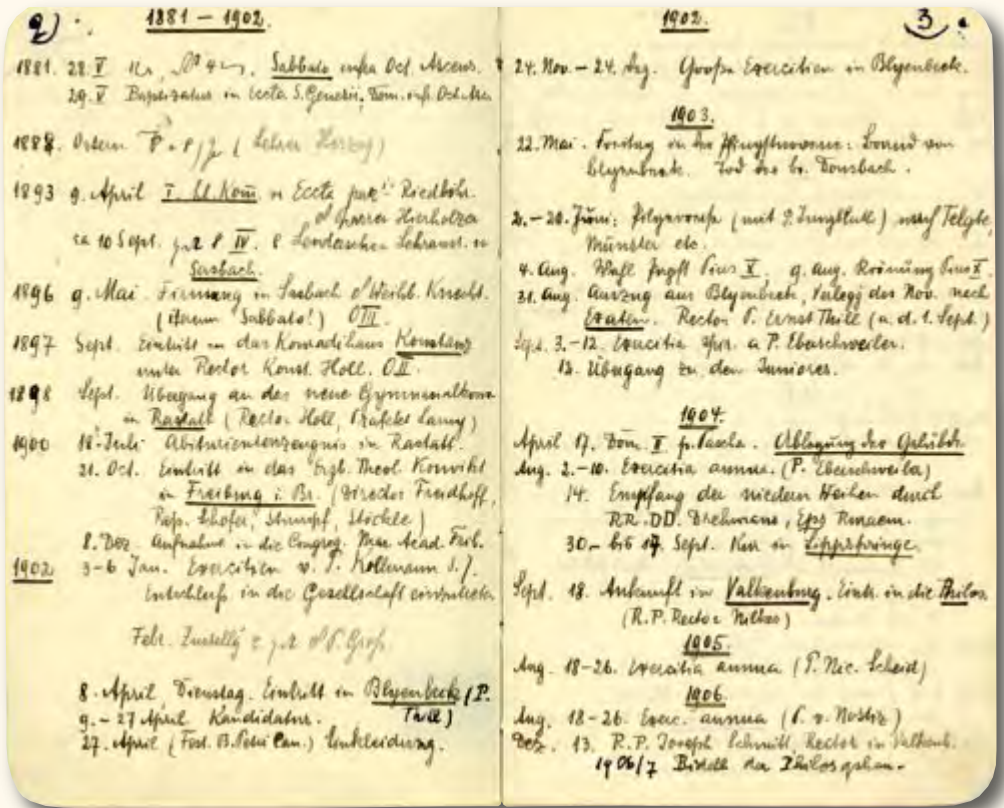 2)
1881 – 1902.
1881. 28. V Sabbato infra Oct. Ascens.
29. V Baptizatus in Eccla S. Genesii, Dom. inf. Oct. Asc.
1888. Ostern (Lehrer Herzog)
1893 9. April I. hl. Kom. in Eccla Riedböhr.
Pfarrer Hierholzer
ca 10 Sept. IV. Lendersche Lehranst. in
Sasbach.
1896 9. Mai. Firmung in Sasbach Weihb. Knecht.
(iterum Sabbato!) O III.
1897 Sept. Eintritt in das Konradihaus Konstanz
unter Rector Konst. Holl. O II.
1898 Sept. Übergang an das neue Gymnasialkonv.
in Rastatt (Rector Holl, Präfekt Lamy)
1900 18. Juli Abiturientenzeugnis in Rastatt.
21. Oct. Eintritt in das Erzb. Theol. Konvikt
in Freiburg i. Br. (Director Freidhoff,
Rep. Schofer, Stumpf, Stöckle)
8. Dez. Aufnahme in die Congreg. Mar. Acad. Frib.
1902 3–6 Jan. Exercitien v. P. Hollmann S. J.
Entschluss in die Gesellschaft einzutreten
Febr. P. Groß.
8. April, Dienstag. Eintritt in Blyenbeck (P.
Thill)
9. – 27 April Kandidatur.
27. April (Fest. B. Petri Can.) Einkleidung.
1902. 3.
24. Nov. – 24. Dez. Große Exercitien in Blyenbeck.
1903.
22. Mai. Freitag in der Pfingstnovene: Brand von
Blyenbeck. Tod des br. Donsbach.
2. – 20. Juni: Pilgerreise (mit P. Jungblut) nach Telgte,
Münster etc.
4. Aug. Wahl Papst Pius X. 9. Aug. Krönung Pius X.
31. Aug. Auszug aus Blyenbeck, Verlegg des Nov. nach
Exaten. Rector P. Ernst Thill (a. d. 1. Sept.)
Sept. 3. – 12. Exercitia spir. a P. Eberschweiler.
13. Übergang zu den Junioren.
1904.
April 17. Dom. II p. Pascha. Ablegung der Gelübde
Aug. 2. – 10. Exercitia annua. (P. Eberschweiler)
14. Empfang der niedern Weihen durch
RR. DD. Drehmans, Eps Ruraem.
30. – bis 17. Sept. Kur in Lippspringe.
Sept. 18. Ankunft in Valkenburg. Eintr. in die Philos.
(R. P. Rector Nilkes)
1905.
Aug. 18–26. Exercitia annua (P. Nic. Scheid)
1906.
Aug. 18–26. Exerc. annua (P. v. Nostiz)
Dez. 13. R. P. Joseph Schmitt, Rector in Valkenb.
1906/7 Bidell der Philosophen.